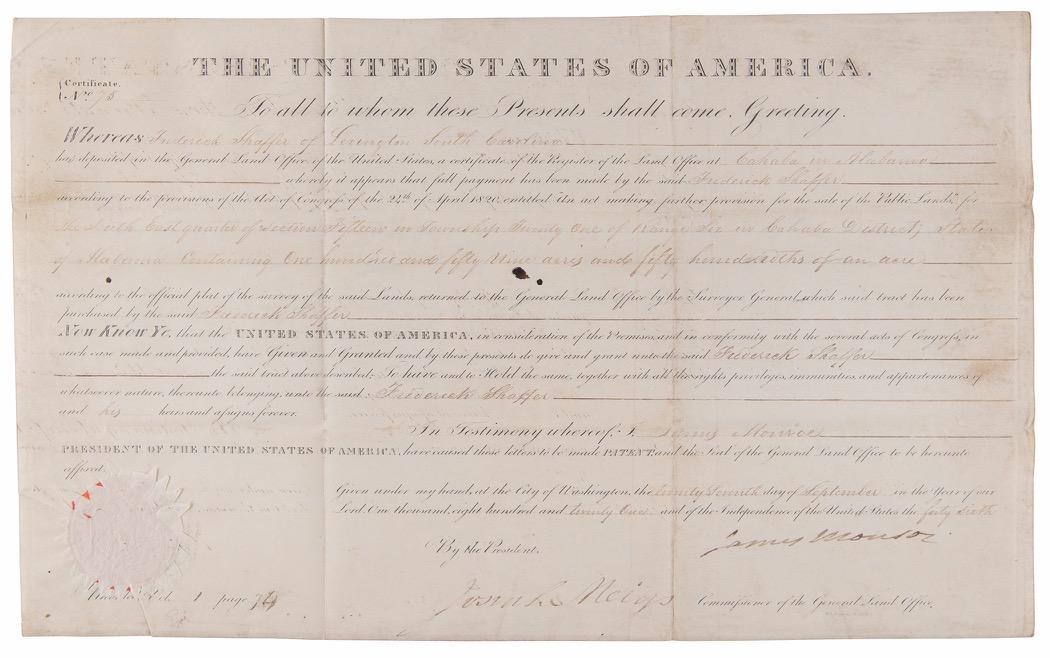 THE UNITED STATES OF AMERICA.
Certificate.
No. 78
To all to whom these Presents shall come, Greeting.
Whereas Frederick Shaffer of Lexington South Carolina
has deposited in the General Land Office of the United States, a certificate of the Register of the Land Office at Cahaba in Alabama
whereby it appears that full payment has been made by the said Frederick Shaffer
according to the provisions of the Act of Congress of the 24th of April 1820, entitled An act making further provision for the sale of the Public Lands, for
the South East quarter of Section Fifteen in Township Twenty One of Range Six in Cahaba District, State
of Alabama Containing One hundred and fifty Nine acres and fifty hundredths of an acre
according to the official plat of the survey of the said Lands, returned to the General Land Office by the Surveyor General, which said tract has been
purchased by the said Frederick Shaffer
Now Know Ye, that the UNITED STATES OF AMERICA, in consideration of the Premises, and in conformity with the several acts of Congress, in
such case made and provided, have Given and Granted and by these presents do give and grant unto the said Frederick Shaffer
the said tract above described: To have and to Hold the same, together with all the rights privileges, immunities, and appurtenances of
whatsoever nature, thereunto belonging, unto the said Frederick Shaffer
and his heirs and assigns forever.
In Testimony whereof, I James Monroe
PRESIDENT OF THE UNITED STATES OF AMERICA, have caused these letters to be made PATENT, and the Seal of the General Land Office to be hereunto
affixed.
Given under my hand, at the City of Washington, the twenty Seventh day of September in the Year of our
Lord One thousand, eight hundred and twenty One and of the Independence of the United States the forty Sixth
James Monroe
By the President.
Josiah Meigs Commissioner of the General Land Office.
Vol. 1 page 74